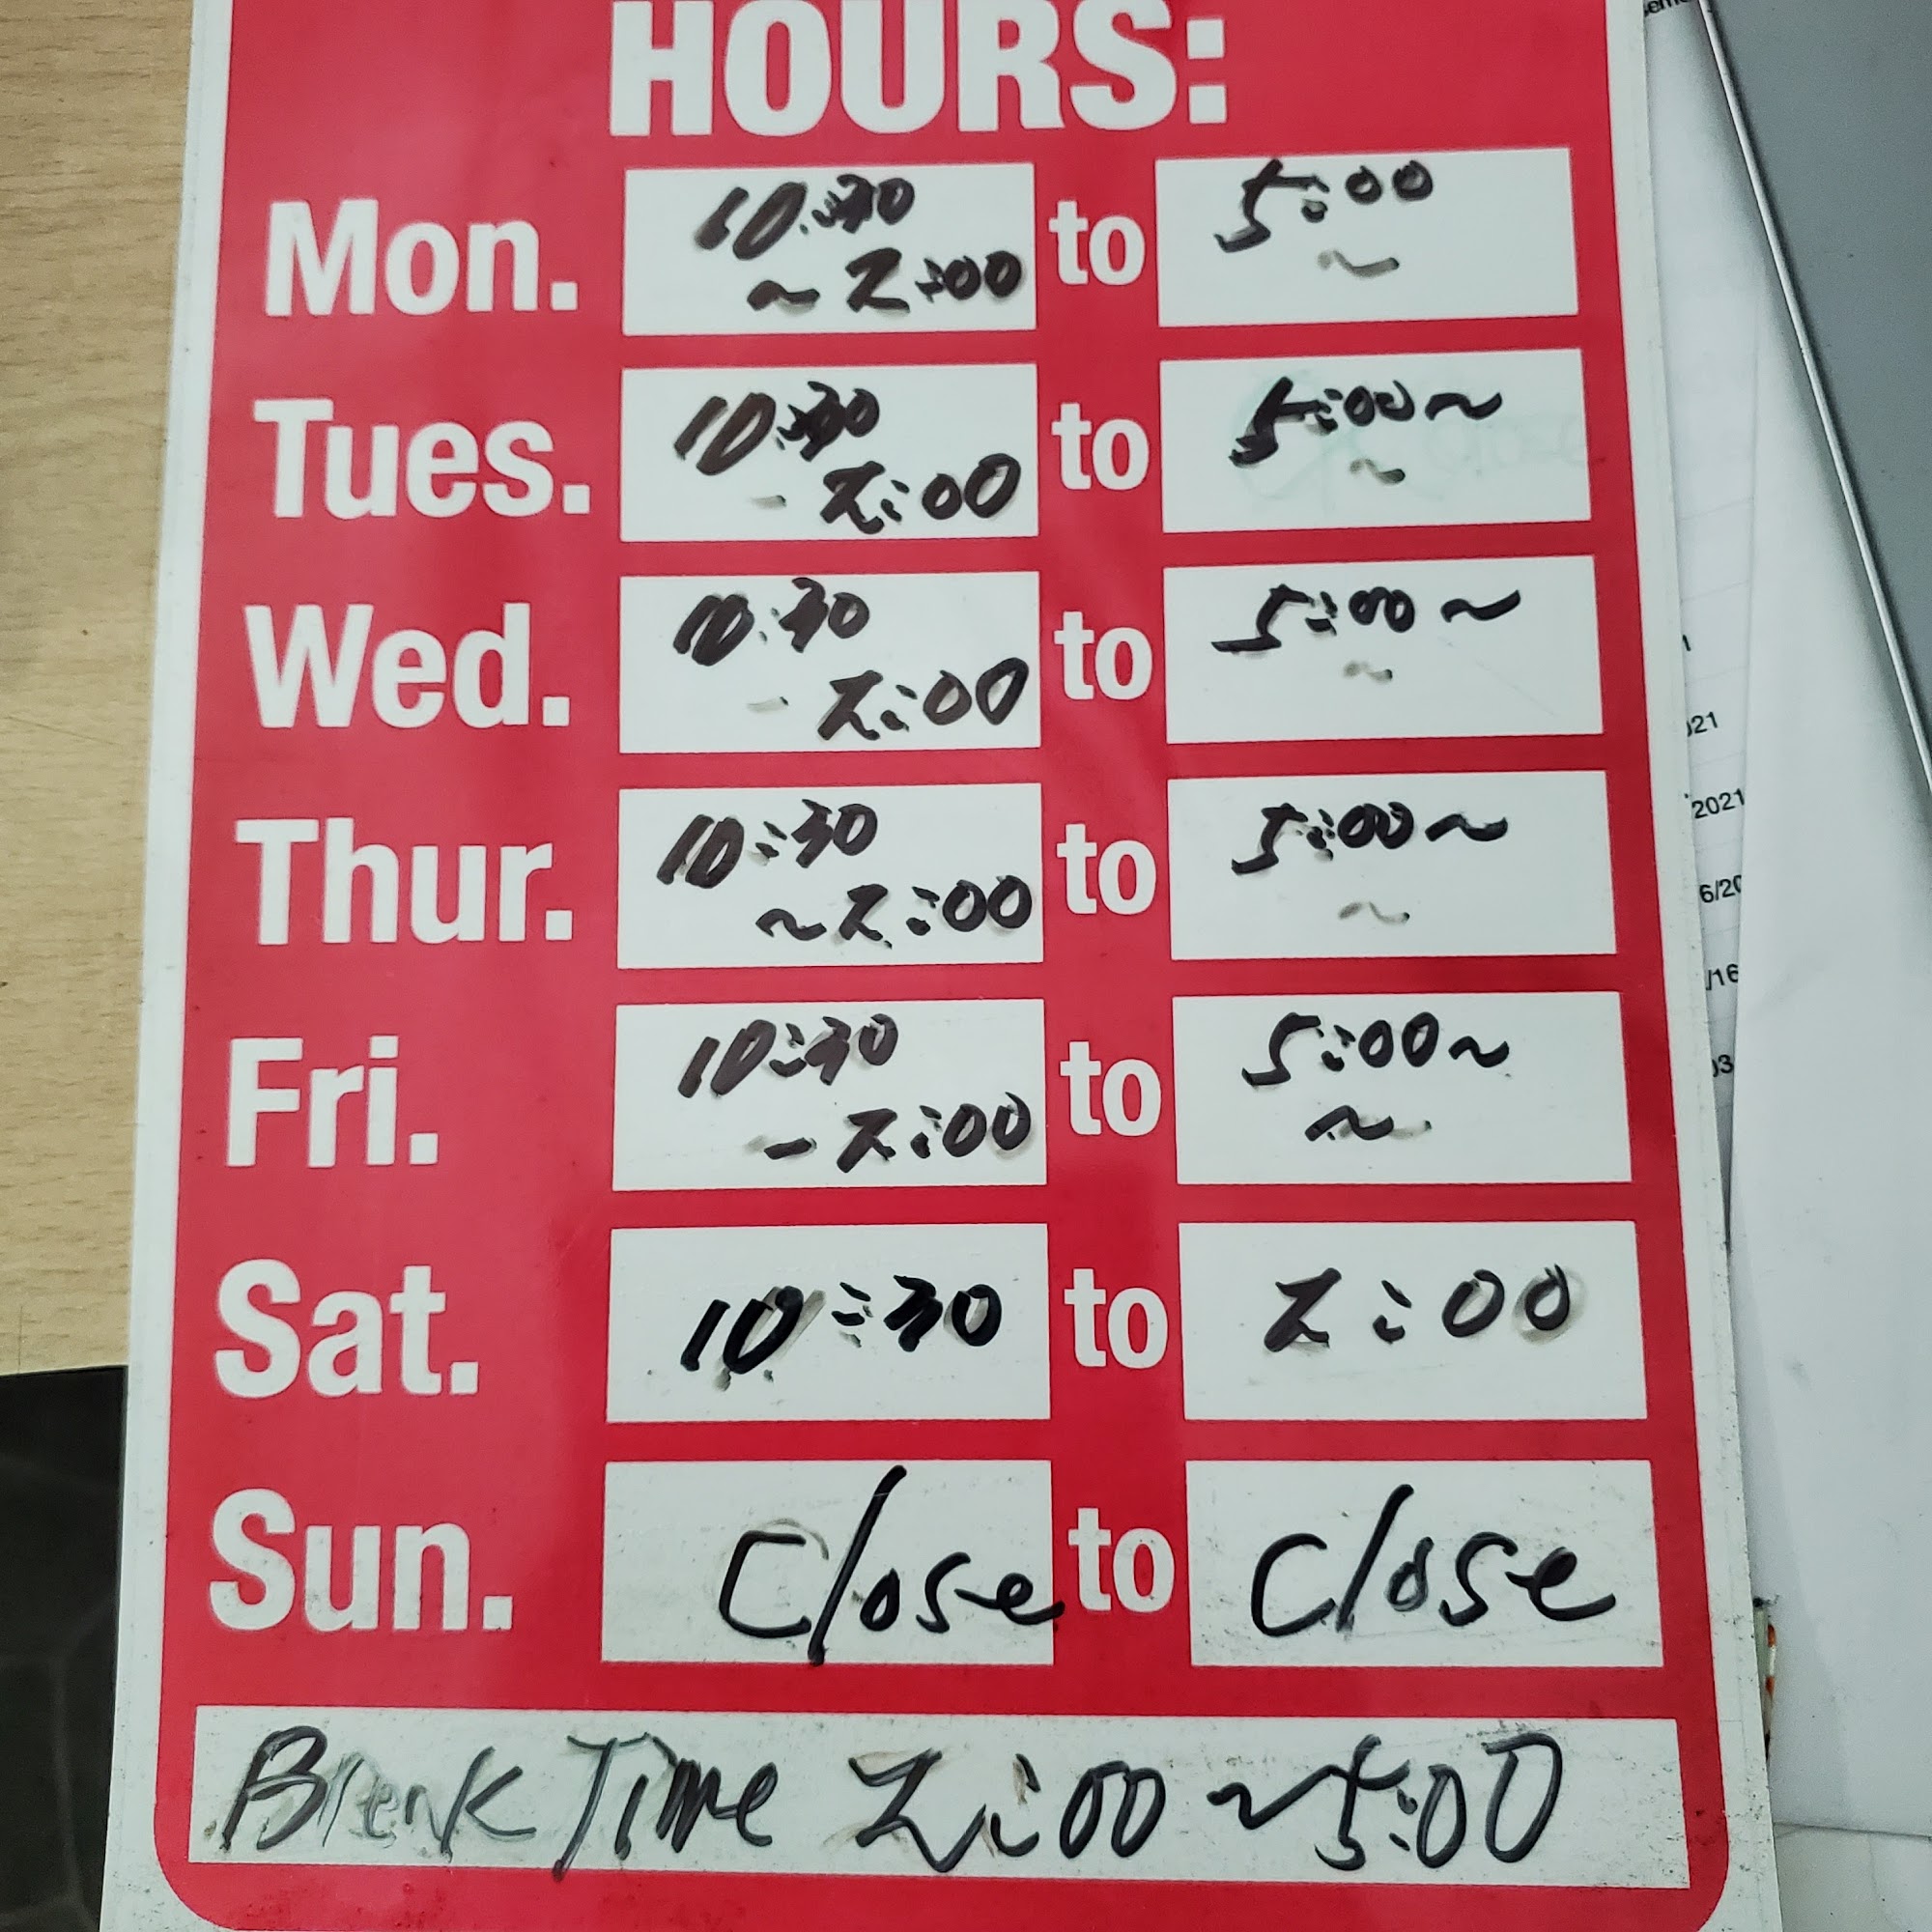 HOURS:
Mon. 10:30 to 5:00
~ 2:00 ~
Tues. 10:30 to 5:00 ~
- 2:00 ~
Wed. 10:30 to 5:00 ~
- 2:00 ~
Thur. 10:30 to 5:00 ~
~ 2:00 ~
Fri. 10:30 to 5:00 ~
- 2:00 ~
Sat. 10:30 to 2:00
Sun. Close to Close
Break Time 2:00 ~ 5:00
2021